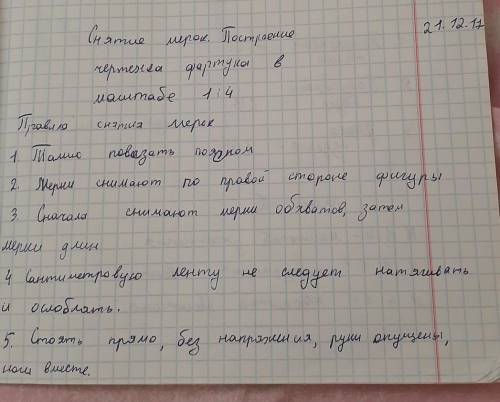 21.12.17
Снятие мерок. Построение
чертежа фартука в
маштабе 1:4
Правила снятия мерок
1. Талию повозать поясом
2. Мерки снимают по правой стороне фигуры
3. Сначала снимают мерки обхватов, затем
мерки длин
4 Сантиметровую ленту не следует натягивать
и ослоблять.
5. Стоять прямо, без напряжения, руки опущены,
ноги вместе.